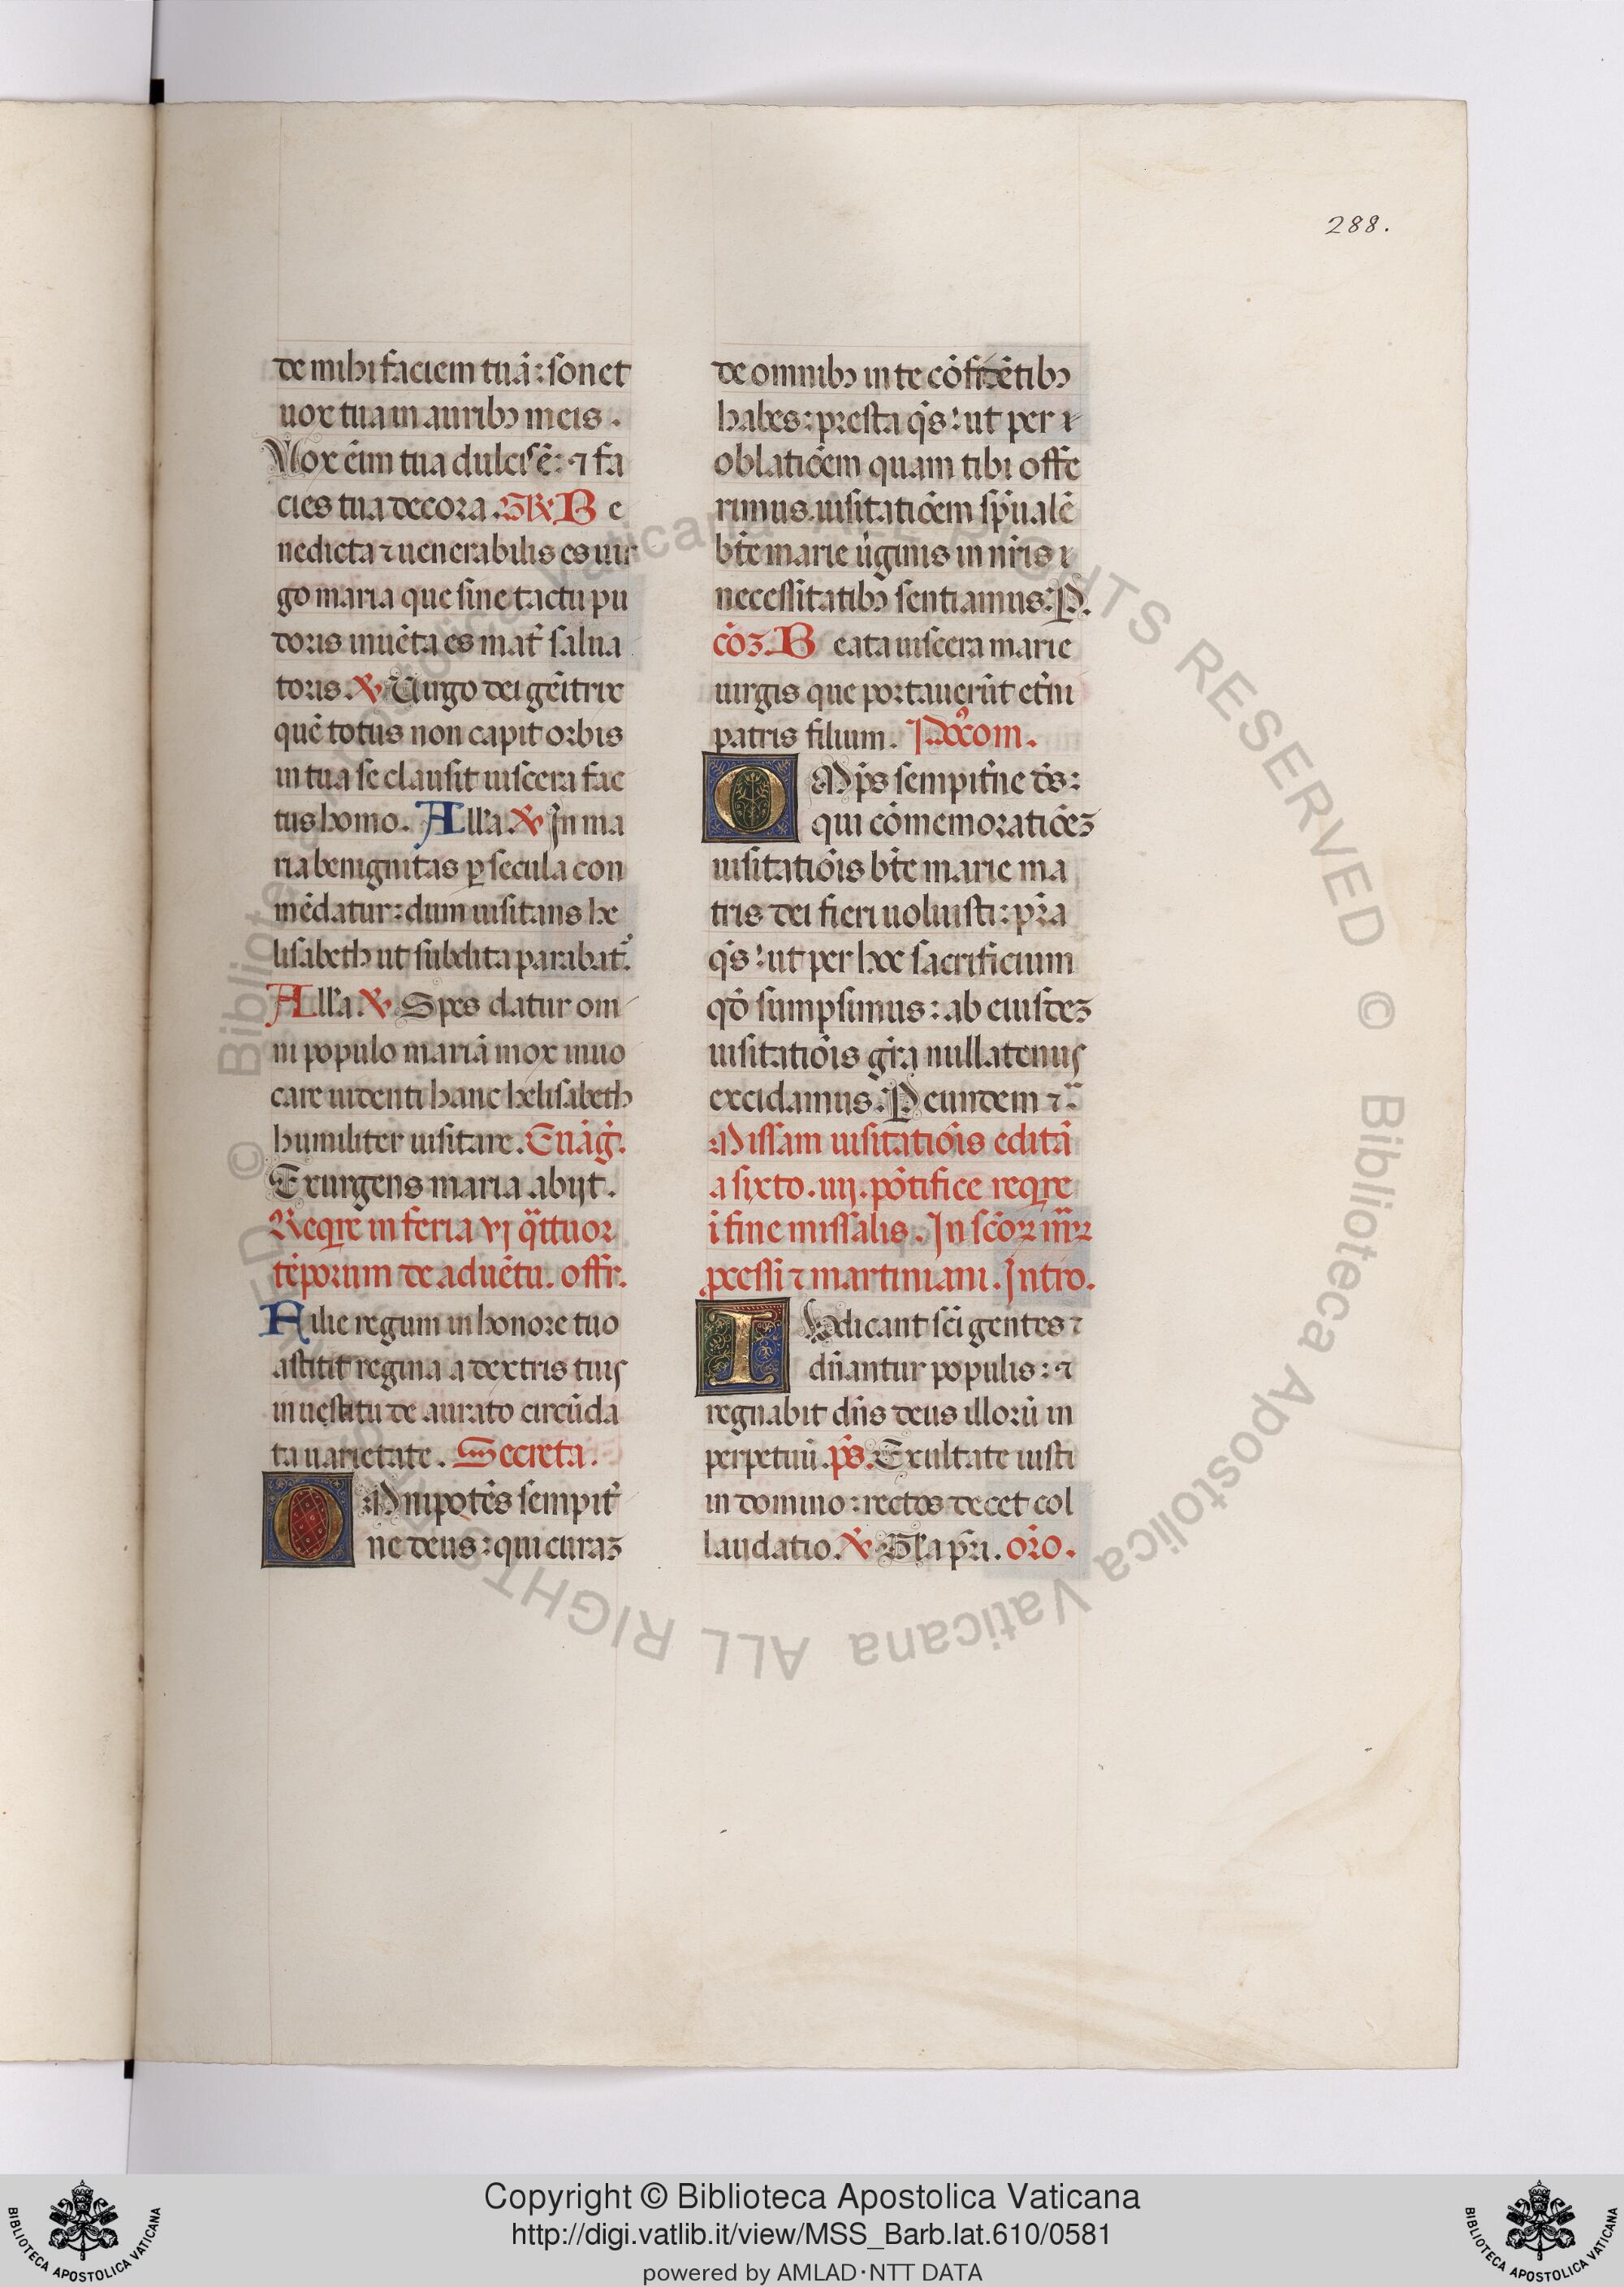 288.
de mihi faciem tuā: sonet
uox tua in auribꝫ meis.
Vox ēim tua dulcis ē: ⁊ fa
cies tua decora. GR. Be
nedicta ⁊ uenerabilis es uir
go maria que sine tactu pu
doris inuēta es mat̄ salua
toris. ℣ Uirgo dei gēitrix
quē totus non capit orbis
in tua se clausit uiscera fac
tus homo. All'a. ℣ In ma
ria benignitas ꝑ secula con
mēdatur: dum uisitans he
lisabeth ut subdita parabat̄.
All'a. ℣ Spes datur om
ni populo mariā mox inuo
care uidenti hanc helisabeth
humiliter uisitare. Euāḡ.
Exurgens maria abijt.
Reqͥre in feria vj qͣttuor
tēporum de aduētu. offr̄.
Filie regum in honore tuo
astitit regina a dextris tuis
in uestitu de aurato circūda
ta uarietate. Secreta.
OMnipotēs sempit̄
ne deus: qui curaꝫ
de omnibꝫ in te cōfidētibꝫ
habes: presta qs̄: ut per i
oblatiōem quam tibi offe
rimus. uisitatiōem sp̄ualē
bt̄e marie ūginis in nr̄is i
necessitatibꝫ sentiamus: P.
cōꝫ. Beata uiscera marie
uirgis que portauerūt et̄ni
patris filium. Poxcom.
OMps̄ sempit̄ne ds̄:
qui cōmemoratiōeꝫ
uisitatiōis bt̄e marie ma
tris dei fieri uoluisti: pr̄a
qs̄: ut per hoc sacrificium
qd̄ sumpsimus: ab eiusdeꝫ
uisitatiōis gr̄a nullatenus
excidamus. P eundem ⁊c̄.
Missam uisitatiōis editā
a sixto. iiij. pōtifice reqͥre
ī fine missalis. In scōꝝ mr̄ꝝ
ꝓcessi ⁊ martiniani. Intro.
IUdicant sc̄i gentes ⁊
dn̄antur populis: ⁊
regnabit dn̄s deus illorū in
perpetuū. ps̄. Exultate iusti
in domino: rectos decet col
laudatio. ℣ Gl'a pr̄i. or̄o.
© Biblioteca Apostolica Vaticana ALL RIGHTS RESERVED © Biblioteca Apostolica Vaticana ALL RIGHTS RESERVED
BIBLIOTECA APOSTOLICA VATICANA
Copyright © Biblioteca Apostolica Vaticana
http://digi.vatlib.it/view/MSS_Barb.lat.610/0581
powered by AMLAD·NTT DATA
BIBLIOTECA APOSTOLICA VATICANA